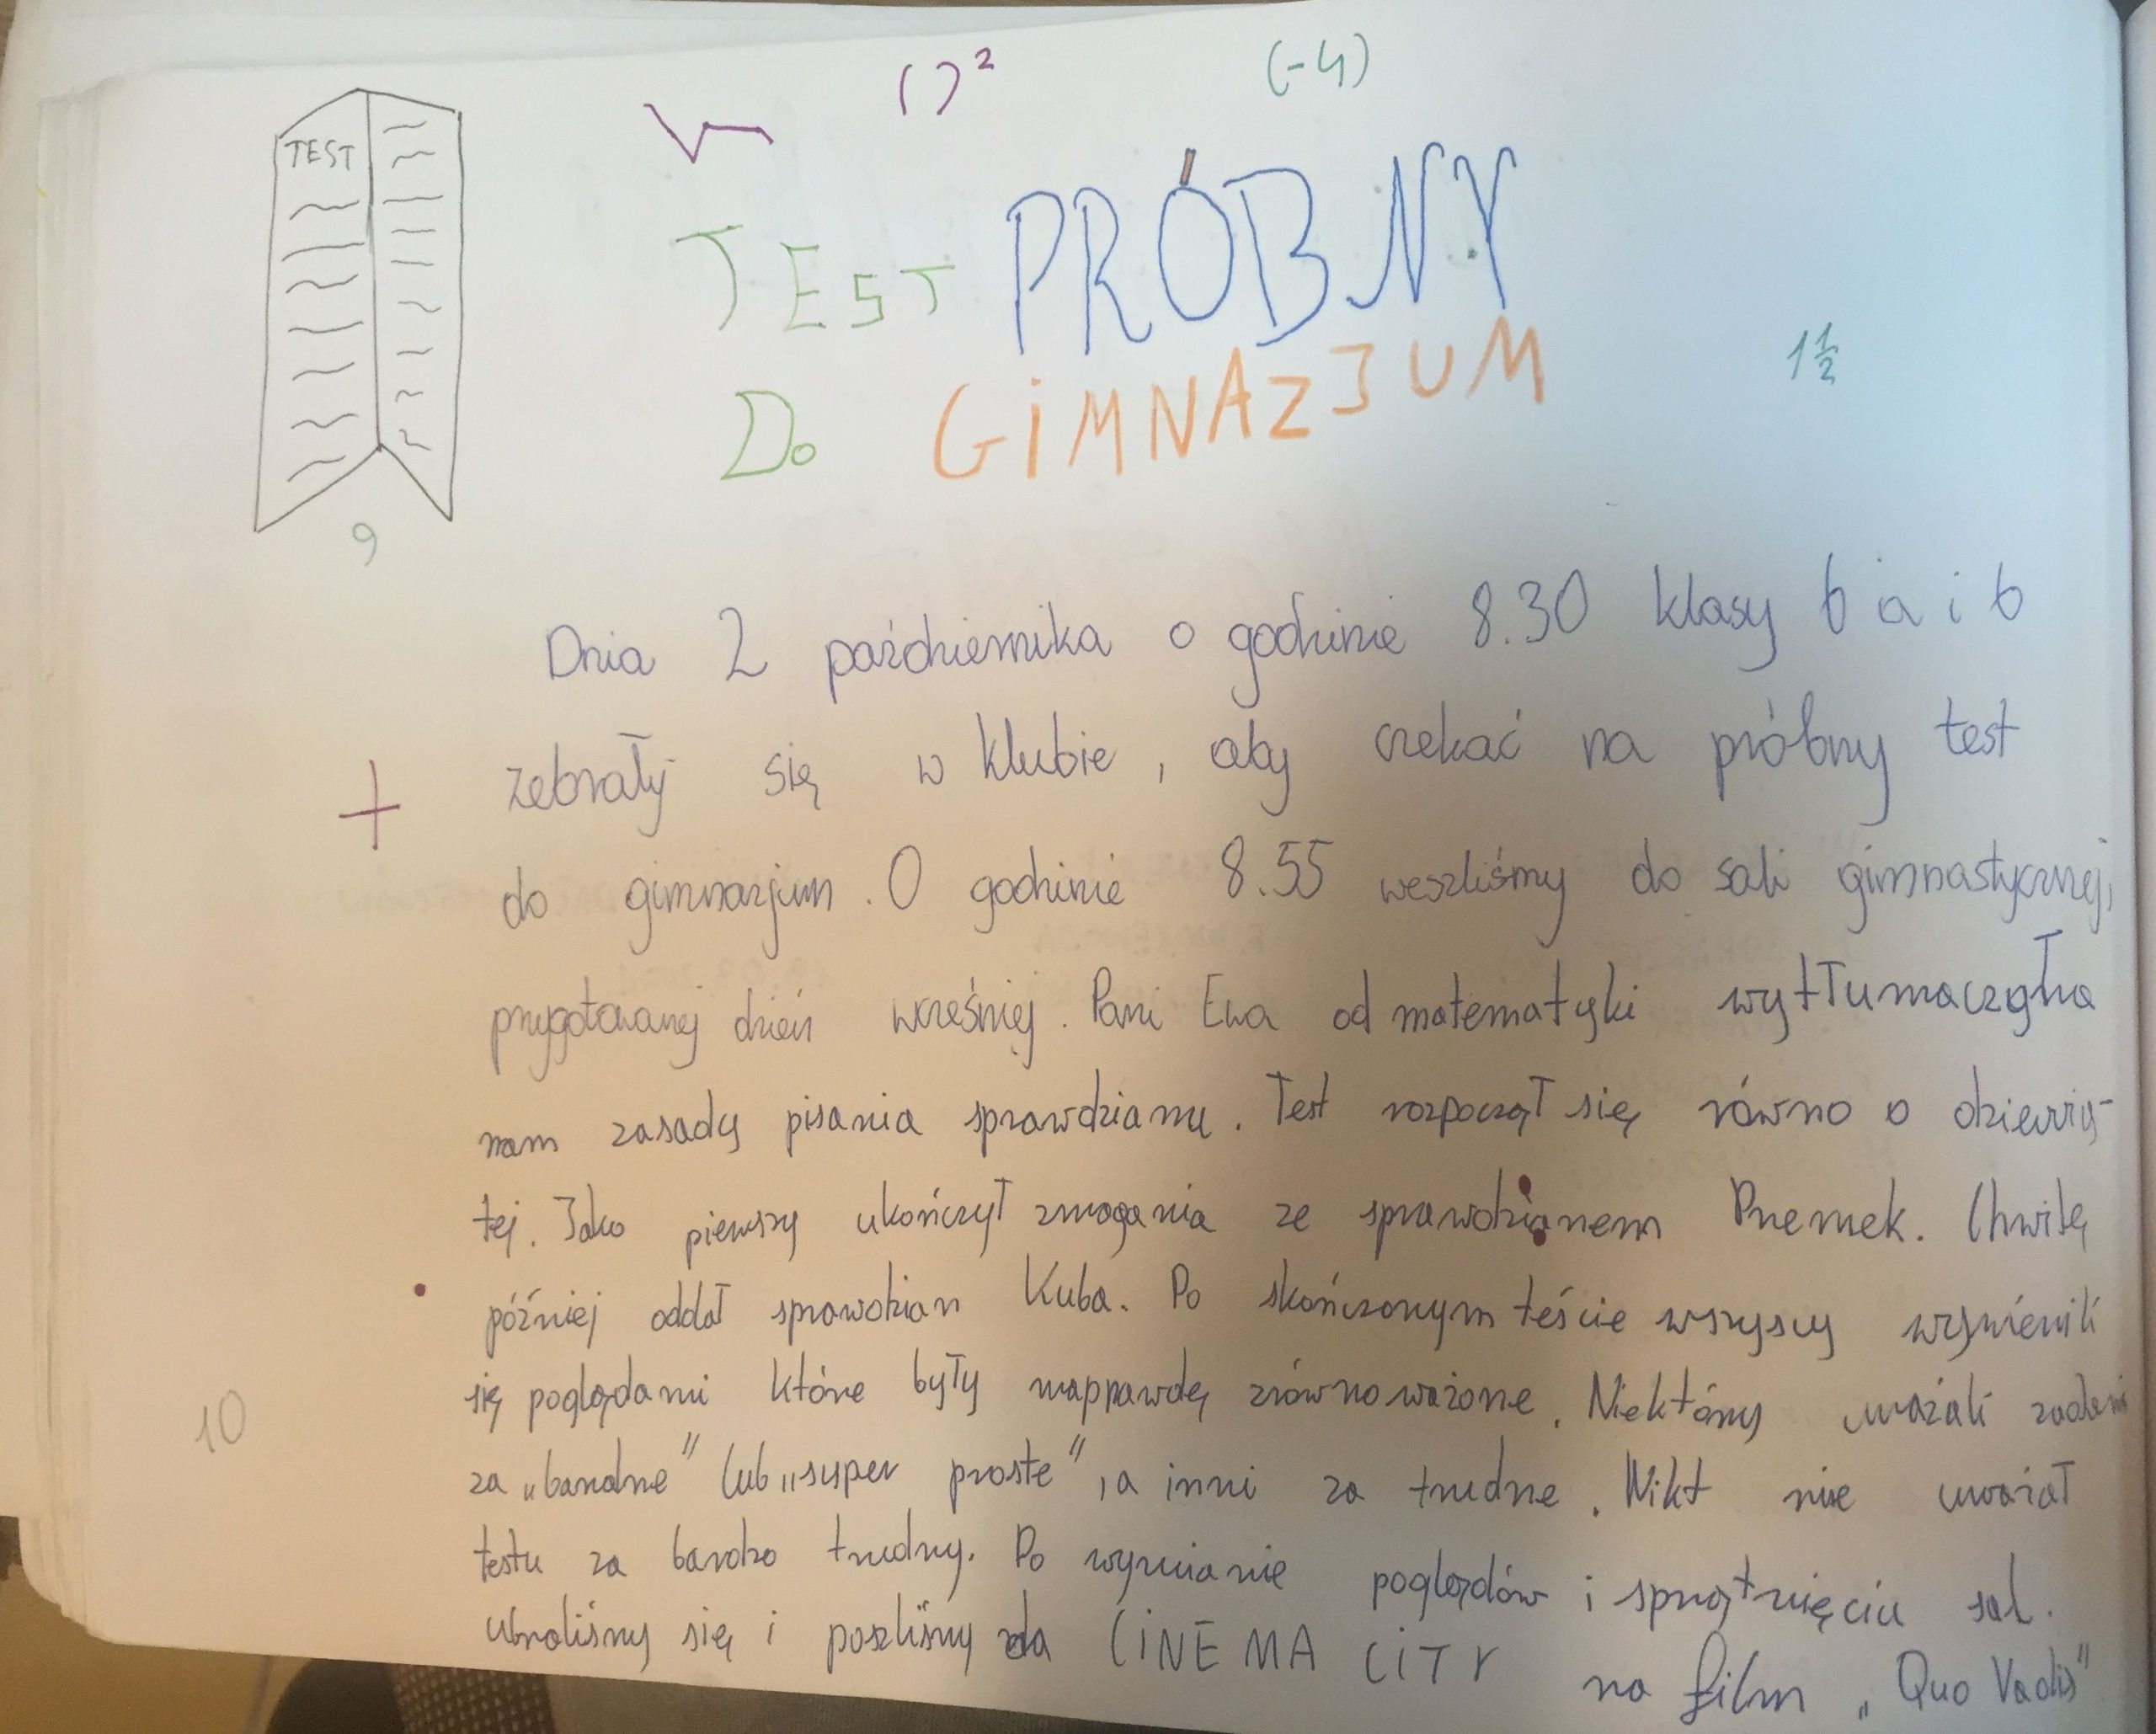 ( )²
(-4)
TEST
TEST PRÓBNY
1 1/2
DO GIMNAZJUM
9
Dnia 2 października o godzinie 8.30 klasy 6 a i b
zebrały się w klubie, aby czekać na próbny test
+
do gimnazjum. O godzinie 8.55 weszliśmy do sali gimnastycznej,
przygotowanej dzień wcześniej. Pani Ewa od matematyki wytłumaczyła
nam zasady pisania sprawdzianu. Test rozpoczął się równo o dziewią-
tej. Jako pierwszy ukończył zmagania ze sprawdzianem Przemek. Chwilę
później oddał sprawdzian Kuba. Po skończonym teście wszyscy wymienili
się poglądami które były naprawdę zrównoważone. Niektórzy uważali zadania
10
za „banalne” lub „super proste”, a inni za trudne. Nikt nie uważał
testu za bardzo trudny. Po wymianie poglądów i sprzątnięciu sal.
ubraliśmy się i poszliśmy do CINEMA CITY na film „Quo Vadis”